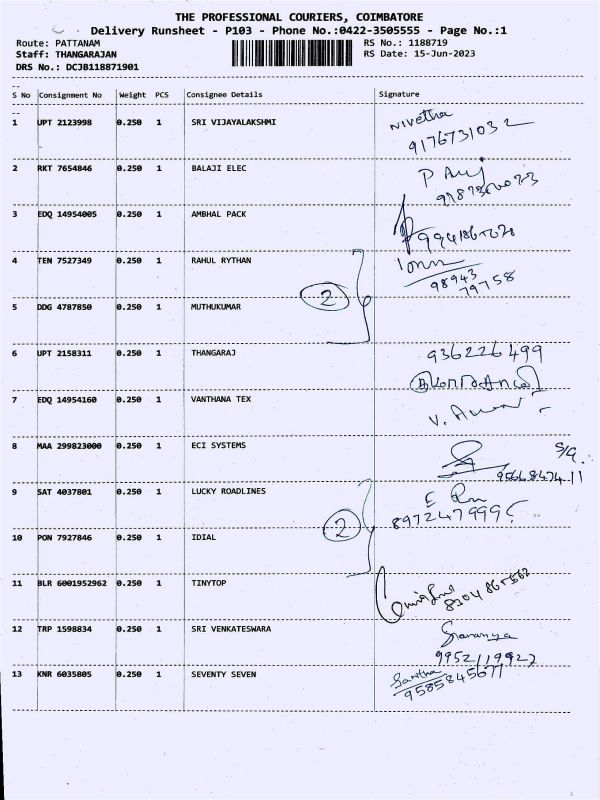 THE PROFESSIONAL COURIERS, COIMBATORE
Delivery Runsheet - P103 - Phone No.:0422-3505555 - Page No.:1
Route: PATTANAM RS No.: 1188719
Staff: THANGARAJAN RS Date: 15-Jun-2023
DRS No.: DCJB118871901
S No Consignment No Weight PCS Consignee Details Signature
1 UPT 2123998 0.250 1 SRI VIJAYALAKSHMI Nivetha
9176731032
2 RKT 7654846 0.250 1 BALAJI ELEC
3 EDQ 14954005 0.250 1 AMBHAL PACK
4 TEN 7527349 0.250 1 RAHUL RYTHAN
98943
79758
2
5 DDG 4787850 0.250 1 MUTHUKUMAR
6 UPT 2158311 0.250 1 THANGARAJ 936226499
7 EDQ 14954160 0.250 1 VANTHANA TEX
8 MAA 299823000 0.250 1 ECI SYSTEMS
9566847411
9 SAT 4037801 0.250 1 LUCKY ROADLINES
2
10 PON 7927846 0.250 1 IDIAL
11 BLR 6001952962 0.250 1 TINYTOP
12 TRP 1598834 0.250 1 SRI VENKATESWARA Saranya
9952119927
13 KNR 6035805 0.250 1 SEVENTY SEVEN Saritha
9585845677